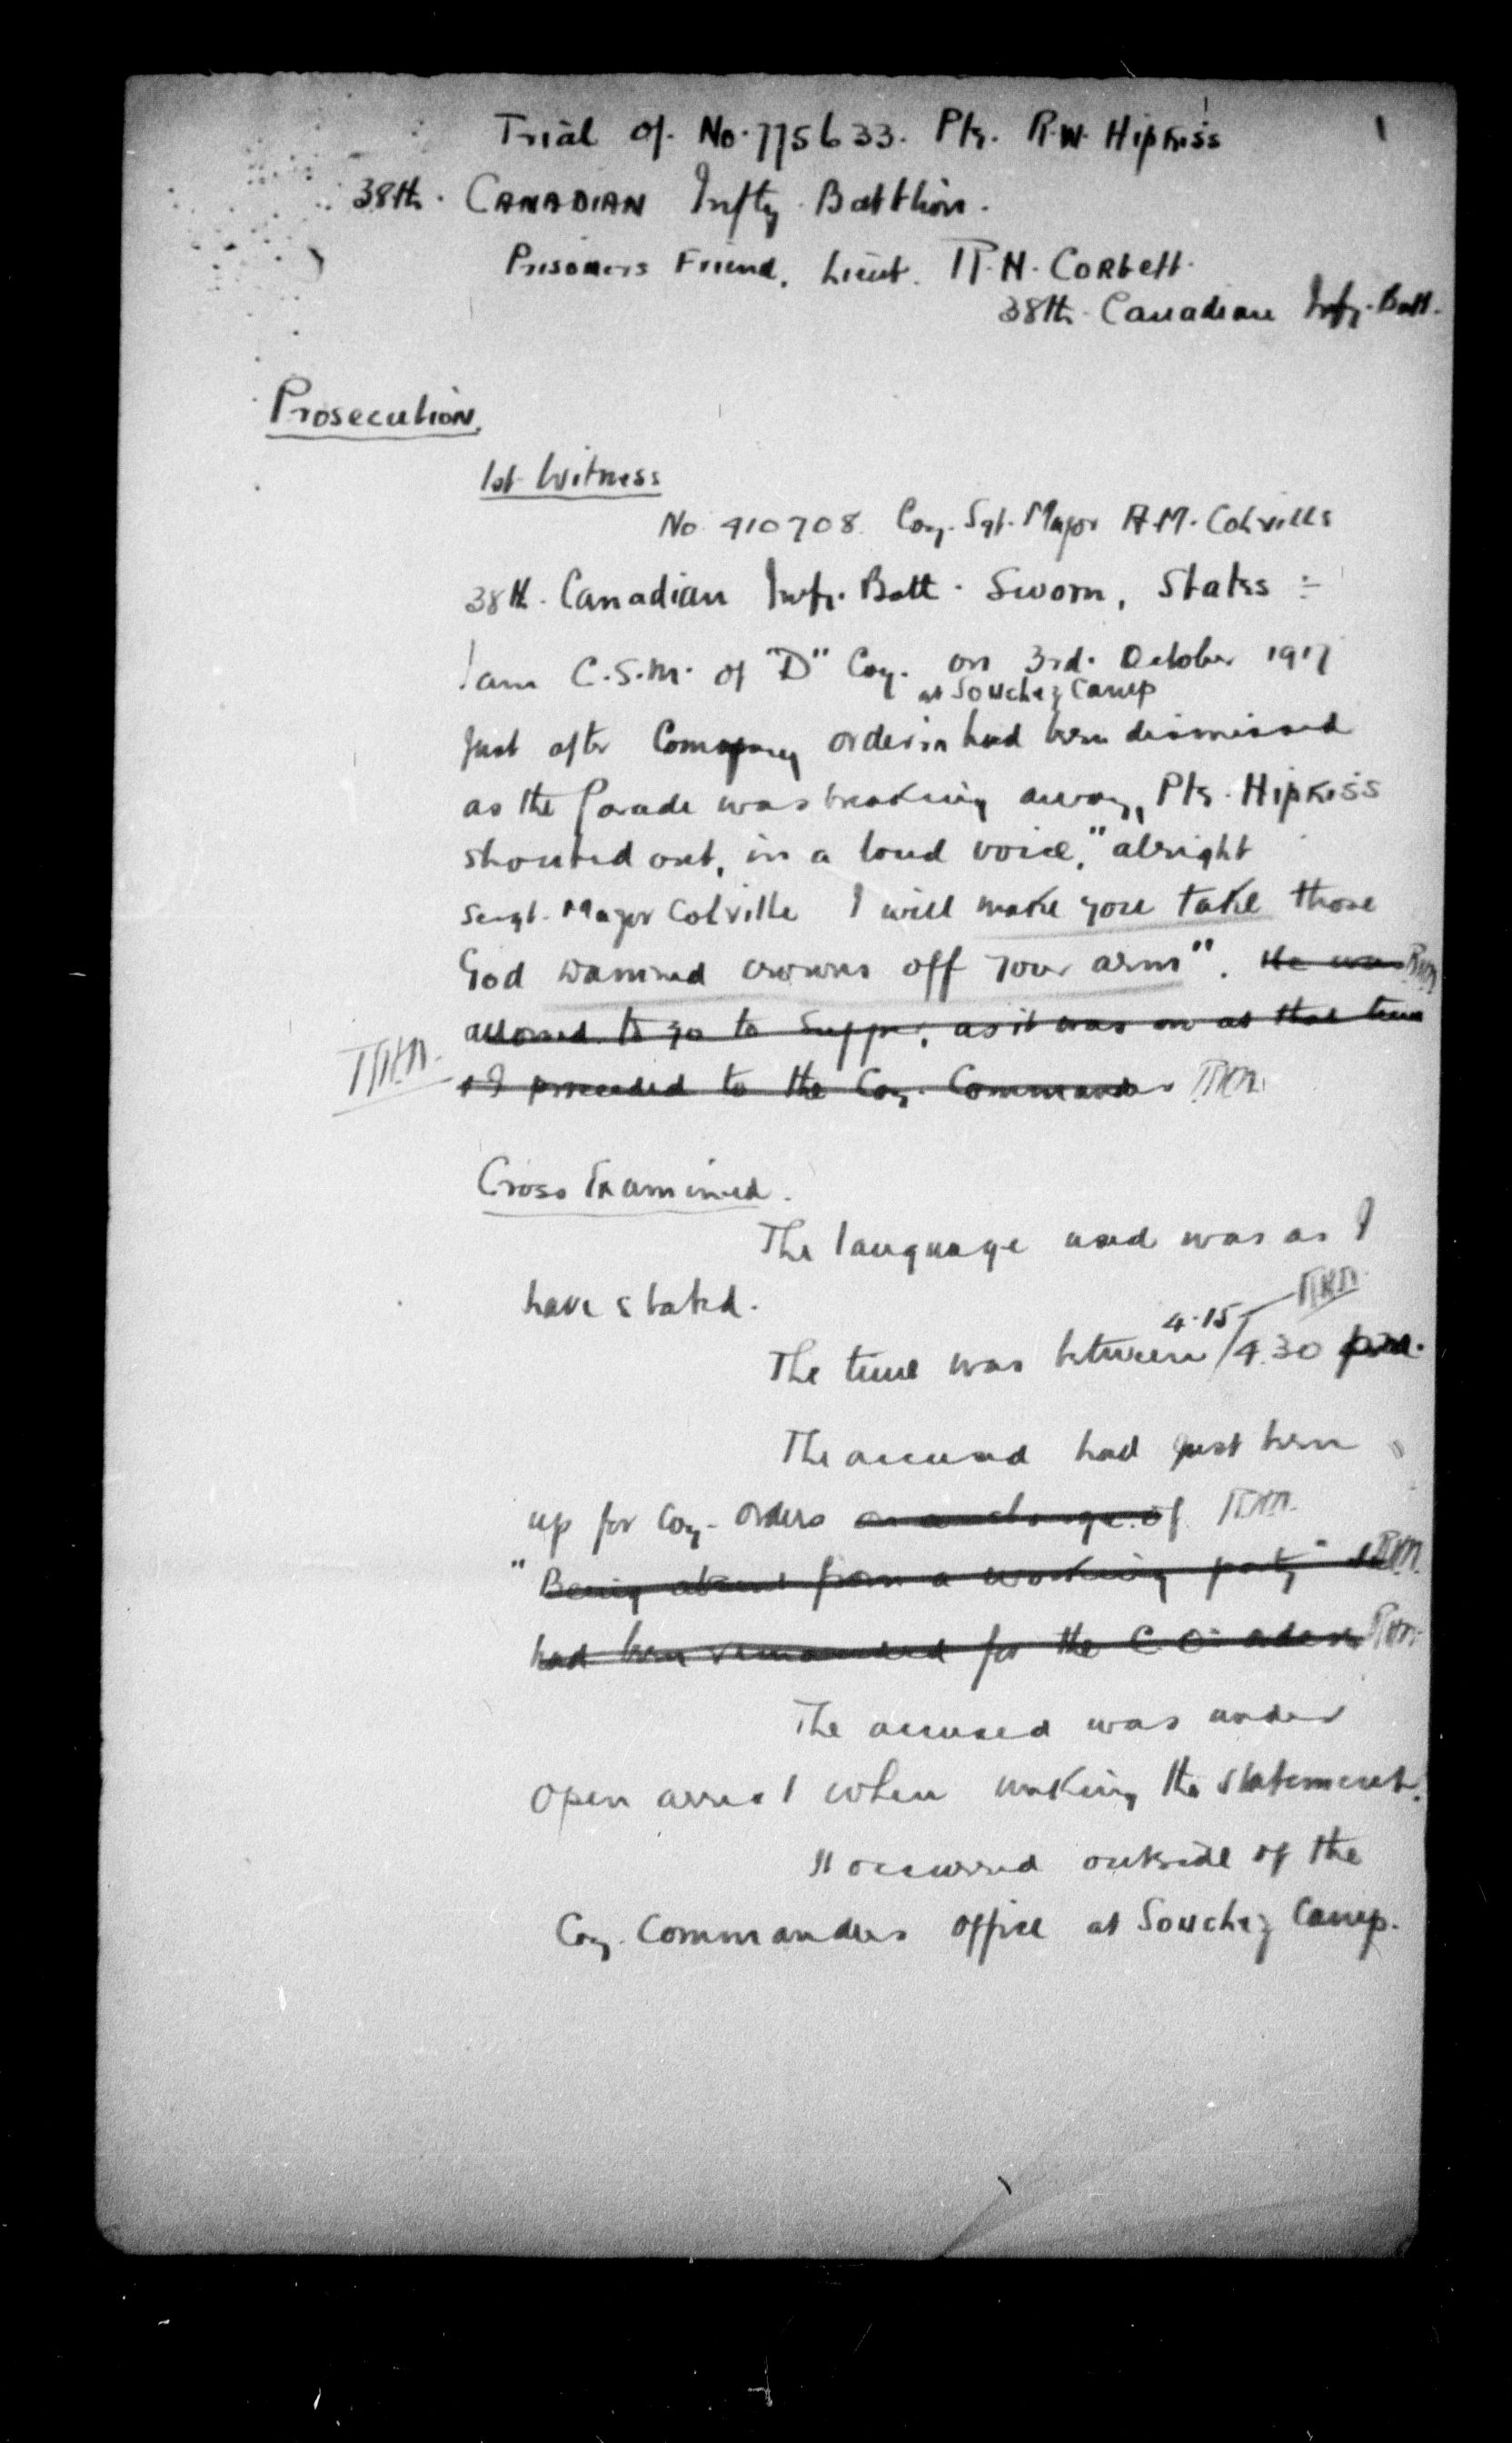 1
Trial of. No. 775633. Pte. R.W. Hipkiss
38th. CANADIAN Infty. Battlion.
Prisoners Friend, Lieut. R.H. Corbett.
38th. Canadian Infy. Batt.
Prosecution.
1st Witness
No 410708. Coy. Sgt. Major A.M. Colville
38th. Canadian Infy. Batt. Sworn, States :-
I am C.S.M. of "D" Coy. on 3rd. October 1917
at Souchez Camp
Just after Company orders had been dismissed
as the Parade was breaking away, Pte. Hipkiss
shouted out, in a loud voice, "alright
Sergt. Major Colville I will make you take those
God dammed crowns off your arm". He was
allowed to go to Supper, as it was on at that time
& I proceeded to the Coy. Commander
Cross Examined.
The language used was as I
have stated.
4.15
The time was between / 4.30 p.m.
The accused had just been
up for Coy. Orders on a charge of
"Being absent from a working party" &
had been remanded for the C.O. orders
The accused was under
open arrest when making the statement.
It occurred outside of the
Coy. Commanders office at Souchez Camp.